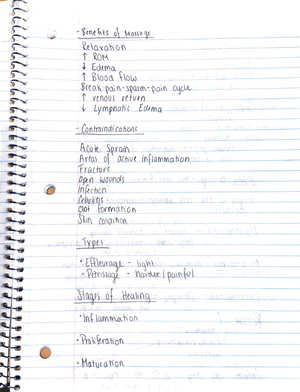 - Benefits of Massage
Relaxation
↑ ROM
↓ Edema
↑ Blood Flow
Break pain-spasm-pain cycle
↑ venous return
↓ Lymphatic Edema
- Contraindications
Acute Sprain
Areas of active inflammation
Fracture
Open wounds
Infection
Cellulitis
Clot formation
Skin condition
Types
• Effleurage - light
• Petrissage - harder/painful
Stages of Healing
• Inflammation
• Proliferation
• Maturation